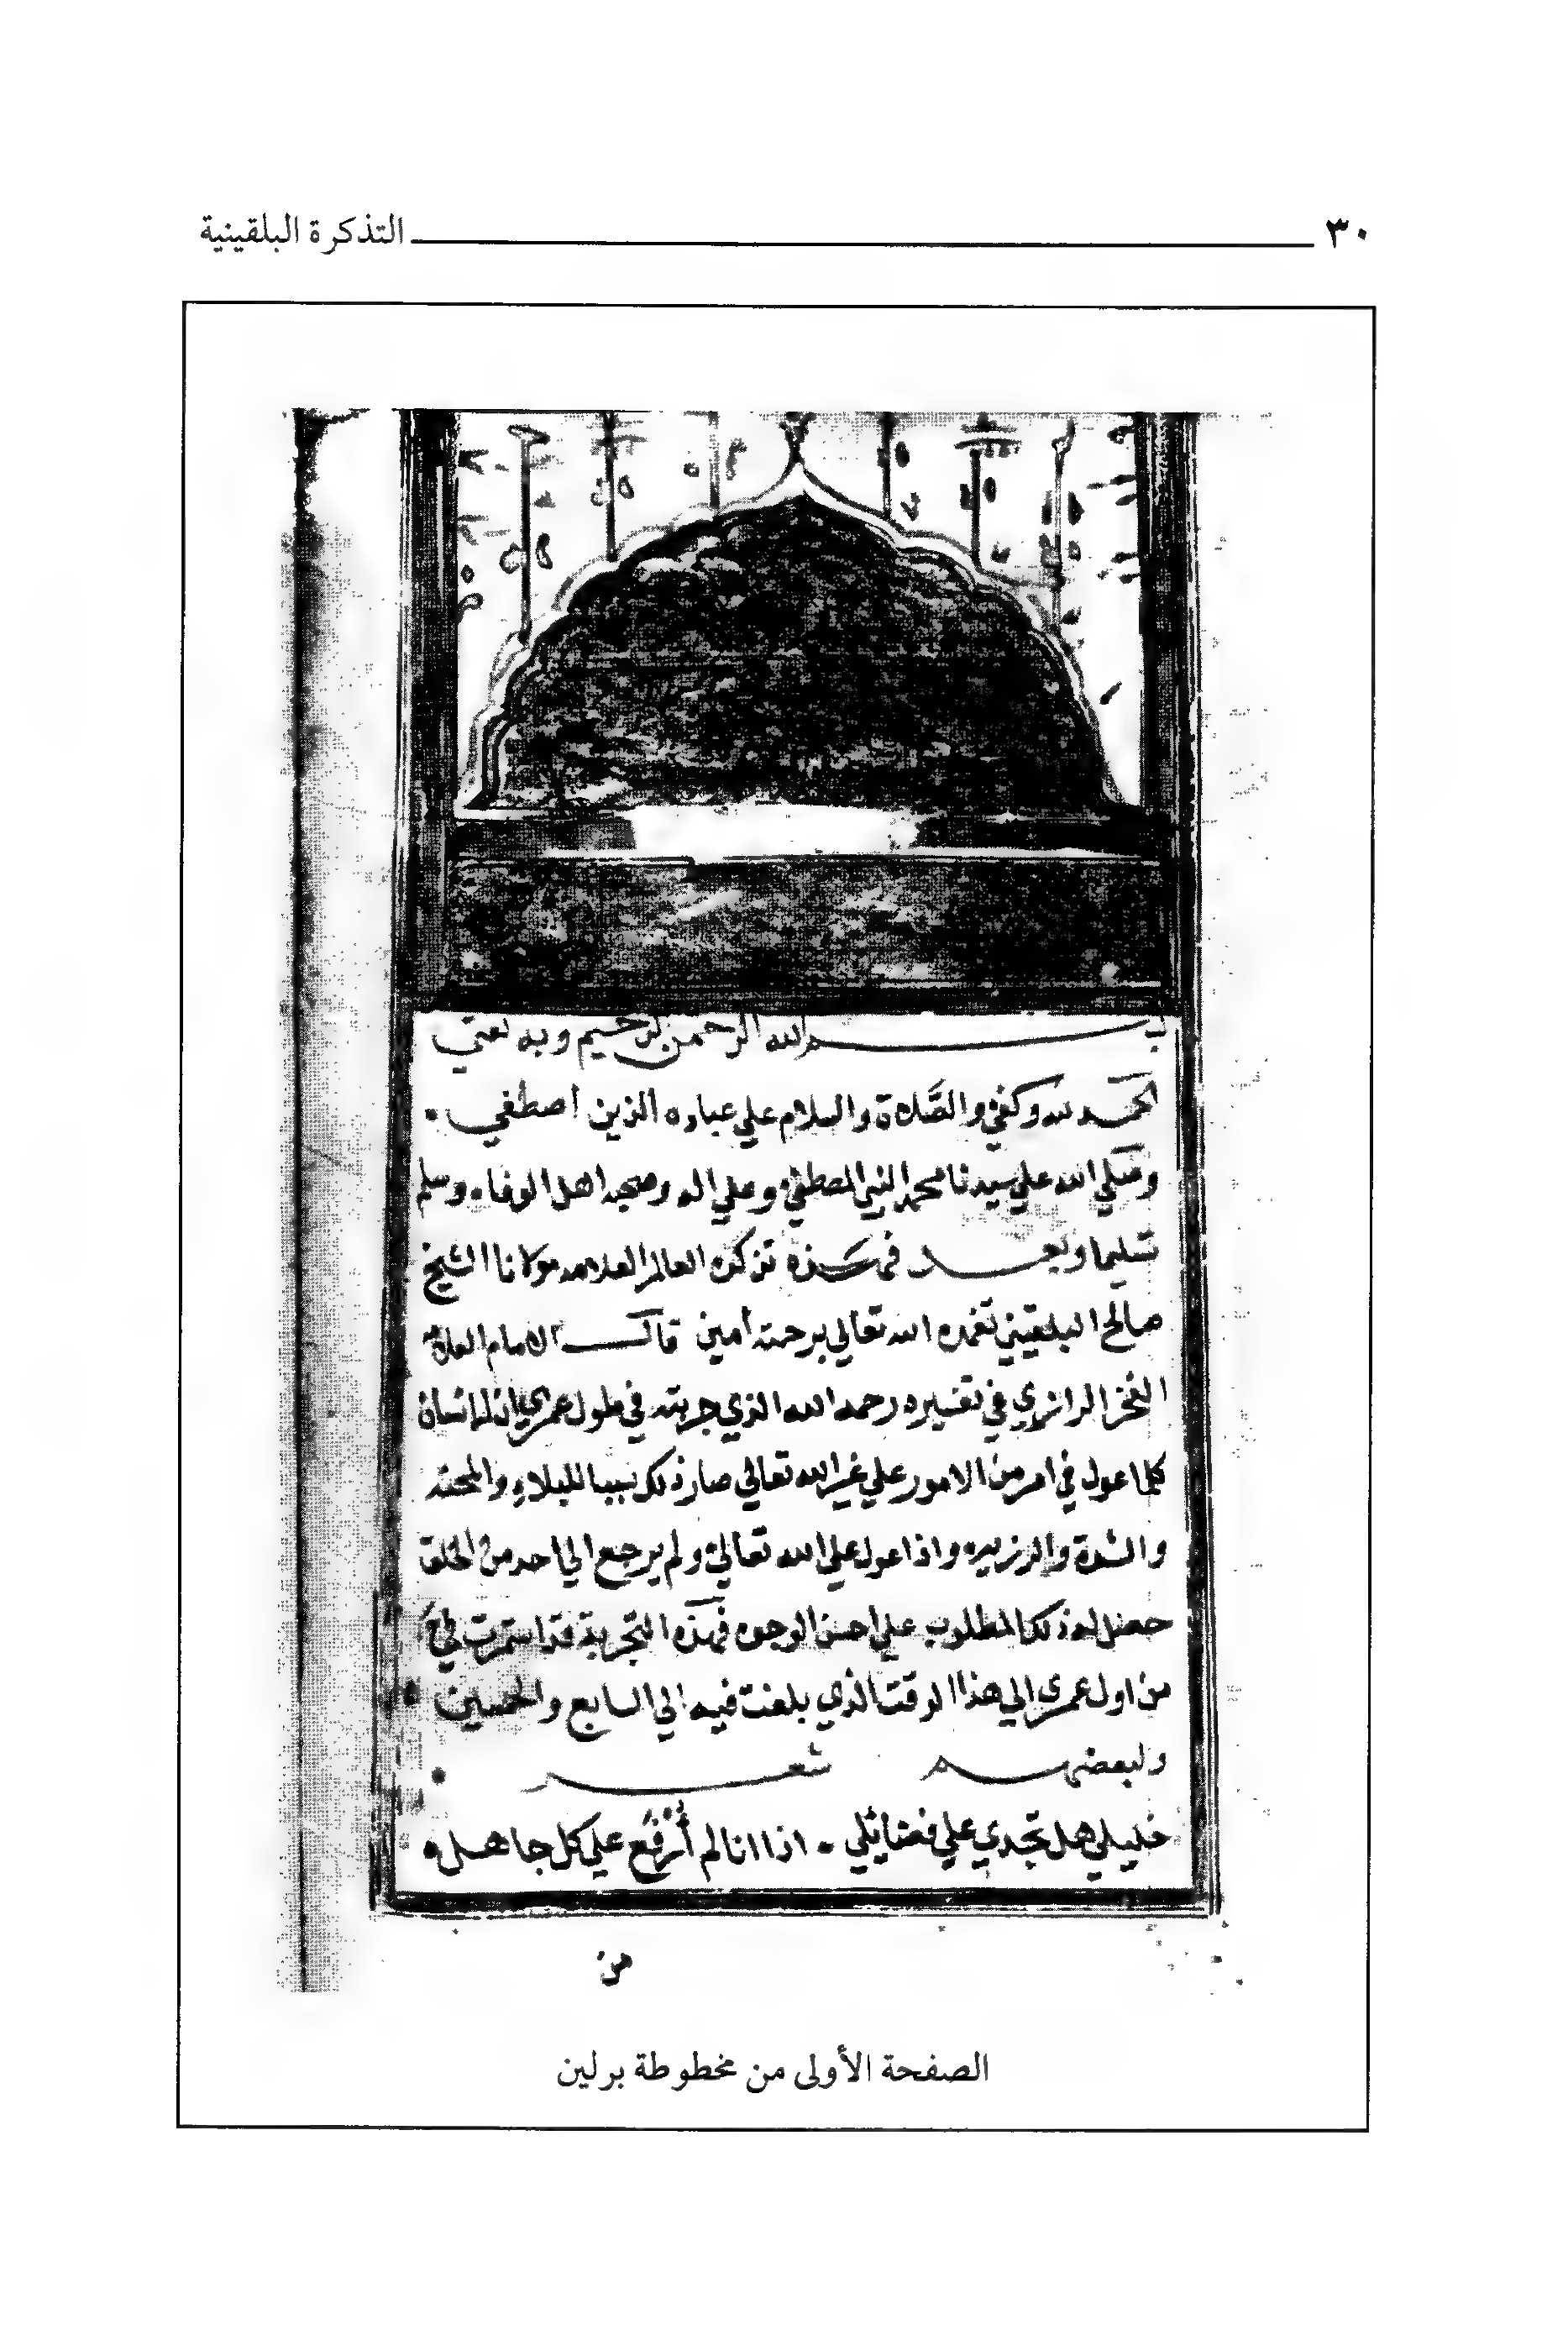 ٣٠ التذكرة البلقينية
بسم الله الرحمن الرحيم وبه ثقتي
الحمد لله وكفى والصَّلاة والسلام علي عباده الذين اصطفي .
وصَلي الله علي سيدنا محمد النبي المصطفي وعلي اله وصحبه اهل الوفاء وسلم
تسليما وبعد فهذه تذكرة العالم العلامه مولانا الشيخ
صالح البلقيني تغمده الله تعالي برحمته أمين قال الامام العلامة
الفخر الرازي في تفسيره رحمه الله الذي جربته في طول عمري ان الانسان
كلما عول في امر من الامور علي غير الله تعالي صار ذلك سببا للبلاء والمحنه
والشدة والرزيه واذا عول علي الله تعالي ولم يرجع الي احد من الخلق
حصل له ذلك المطلوب علي احسن الوجوه فهذه التجربة قد استمرت لي
من اول عمري الي هذا الوقت الذي بلغت فيه الي السابع والخمسين
ولبعضهم شعر
خليلي هل تجدي علي فضائلي . اذا انا لم أُرفَع علي كل جاهل
من
الصفحة الأولى من مخطوطة برلين